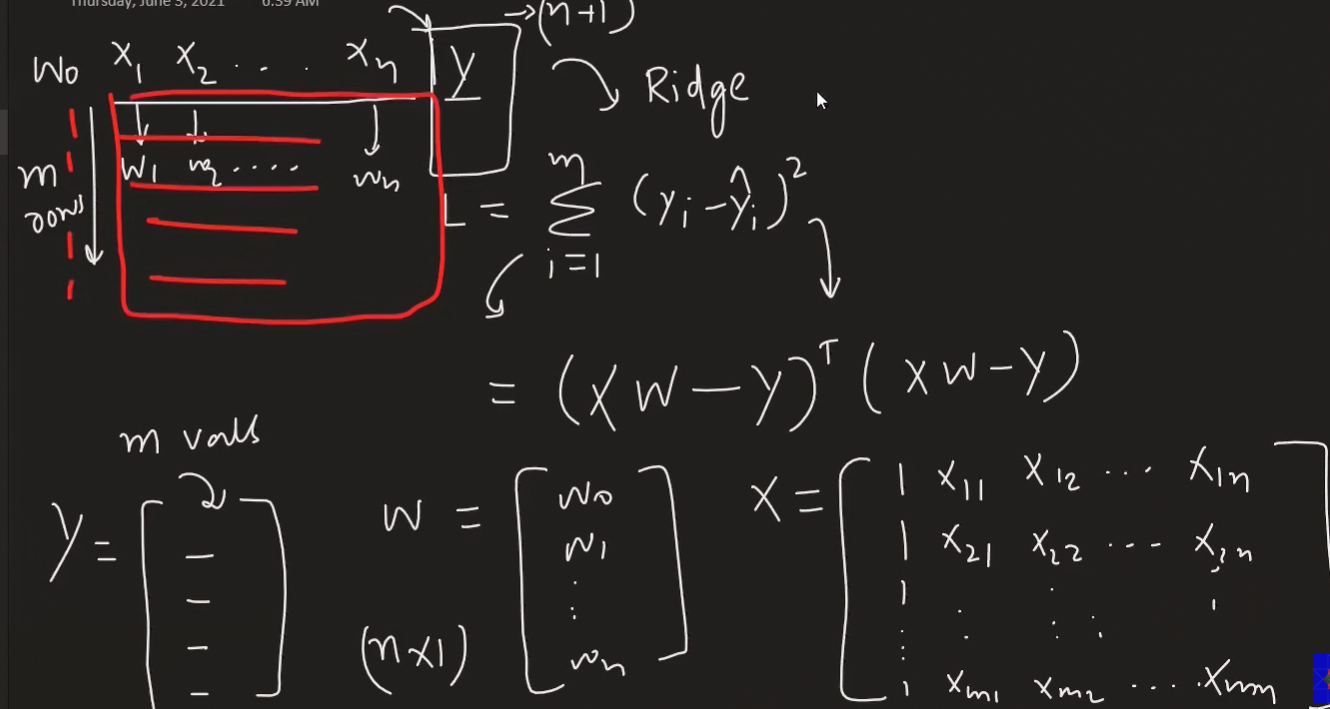 Thursday, June 3, 2021 6:39 AM
→(n+1)
W₀ X₁ X₂ . . . . Xₙ Y
Ridge
m rows
W₁ w₂ . . . . wₙ
L = Σ i=1 m (yᵢ - ŷᵢ)²
= (XW - Y)ᵀ (XW - Y)
m valls
Y = [ – – – –
W = [ W₀ W₁ : : wₙ ]
(n×1)
X = [ 1 X₁₁ X₁₂ ... X₁ₙ
1 X₂₁ X₂₂ ... X₂ₙ
1 . : . ı
: . : . .
1 Xₘ₁ Xₘ₂ .... Xₙₘ ]